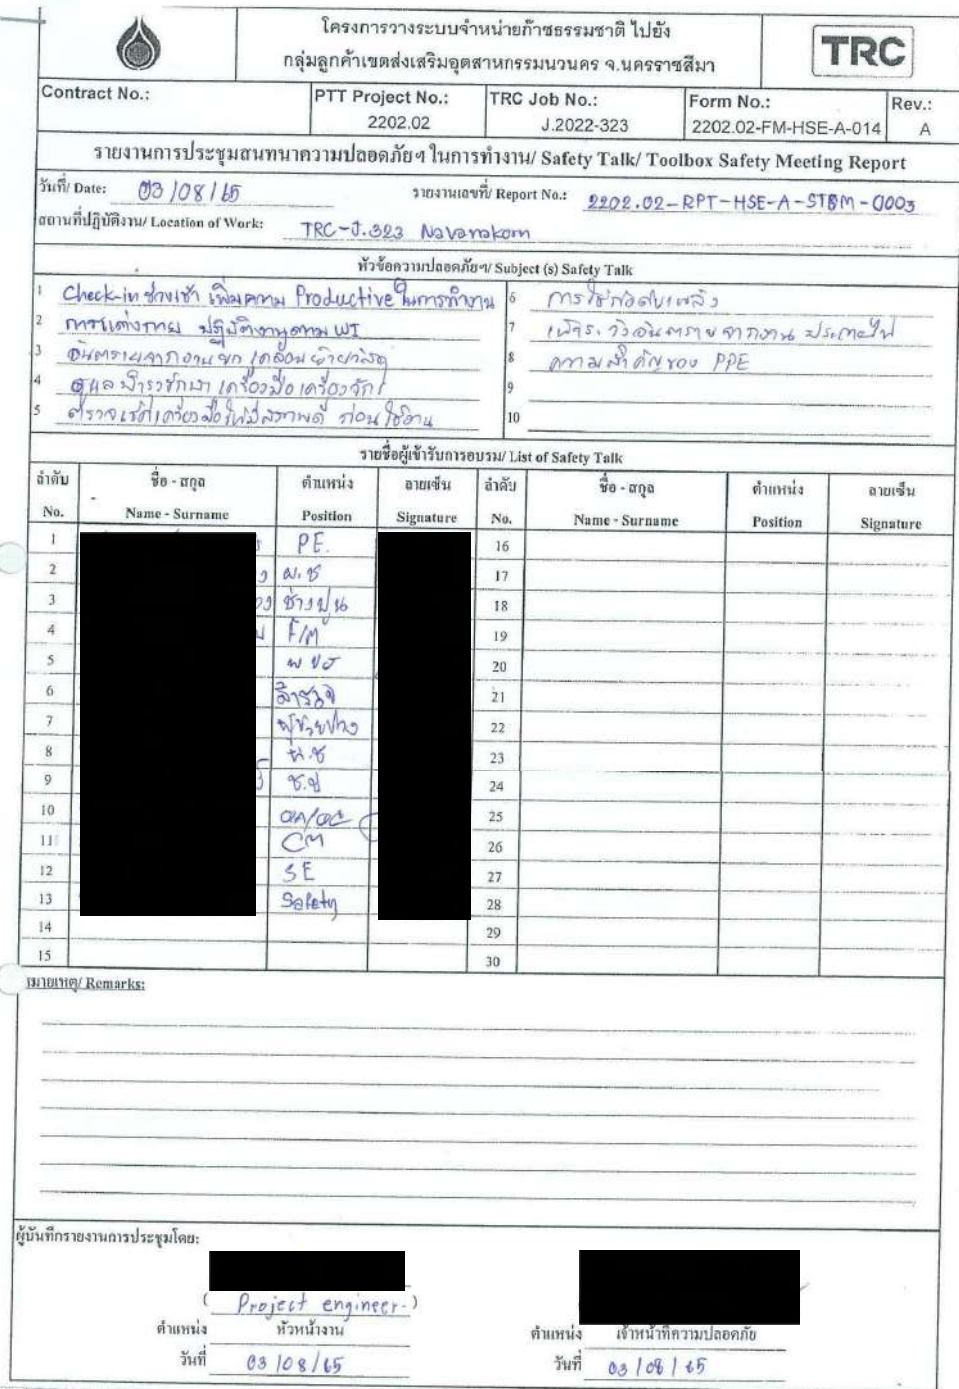 โครงการวางระบบจำหน่ายก๊าซธรรมชาติ ไปยัง
กลุ่มลูกค้าเขตส่งเสริมอุตสาหกรรมนวนคร จ.นครราชสีมา
TRC
Contract No.:
PTT Project No.: 2202.02
TRC Job No.: J.2022-323
Form No.: 2202.02-FM-HSE-A-014
Rev.: A
รายงานการประชุมสนทนาความปลอดภัยฯ ในการทำงาน/ Safety Talk/ Toolbox Safety Meeting Report
วันที่/ Date: 03/08/65 รายงานเลขที่/ Report No.: 2202.02-RPT-HSE-A-STBM-0003
สถานที่ปฏิบัติงาน/ Location of Work: TRC-J.323 Navanakorn
หัวข้อความปลอดภัยฯ/ Subject (s) Safety Talk
1 Check-in ช่วงเช้า เพิ่มความ Productive ในการทำงาน
2 การแต่งกาย ปฏิบัติงานตาม WI
3 อันตรายจากงานยก เคลื่อนย้ายวัสดุ
4 ดูแลบำรุงรักษา เครื่องมือ เครื่องจักร
5 ตรวจเช็คเครื่องมือให้มีสภาพดี ก่อนใช้งาน
6 การใช้ถังดับเพลิง
7 เฝ้าระวังอันตรายจากงาน ประกายไฟ
8 ความสำคัญของ PPE
9
10
รายชื่อผู้เข้ารับการอบรม/ List of Safety Talk
ลำดับ ชื่อ - สกุล ตำแหน่ง ลายเซ็น ลำดับ ชื่อ - สกุล ตำแหน่ง ลายเซ็น
No. Name - Surname Position Signature No. Name - Surname Position Signature
1 PE. 16
2 ผ.ช 17
3 ช่างปูน 18
4 F/M 19
5 พขร 20
6 สำรวจ 21
7 22
8 ผ.ช 23
9 ช.ป 24
10 QA/QC 25
11 CM 26
12 SE 27
13 Safety 28
14 29
15 30
หมายเหตุ/ Remarks:
ผู้บันทึกรายงานการประชุมโดย:
( Project engineer )
ตำแหน่ง หัวหน้างาน
ตำแหน่ง เจ้าหน้าที่ความปลอดภัย
วันที่ 03/08/65
วันที่ 03/08/65